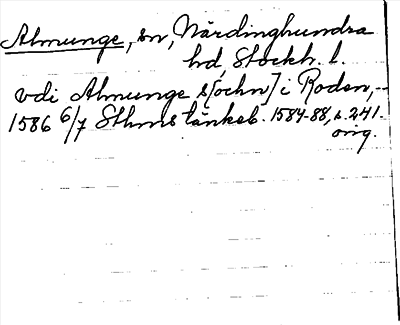 Almunge, sn, Närdinghundra
hd, Stockh. l.
vdi Almunge s[ochn] i Roden, -
1586 6/7 Sthms tänkeb. 1584-88, s. 241.
orig.